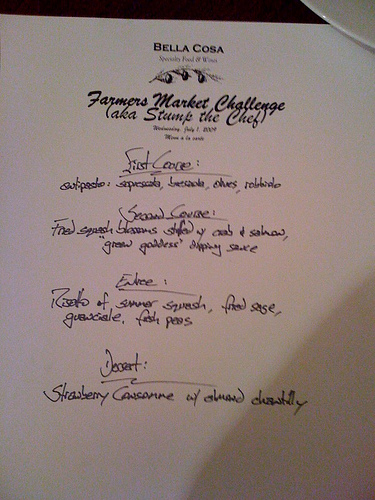 BELLA COSA
Specialty Food & Wines
Farmers Market Challenge
(aka Stump the Chef)
Wednesday, July 1, 2009
Menu a la carte
First Course:
antipasto: sopressata, bresaola, olives, robiola
Second Course:
Fried squash blossoms stuffed w/ crab & salmon,
"green goddess" dipping sauce
Entree:
Risotto of summer squash, fried sage,
guanciale, fresh peas
Dessert:
Strawberry Consomme w/ almond chantilly